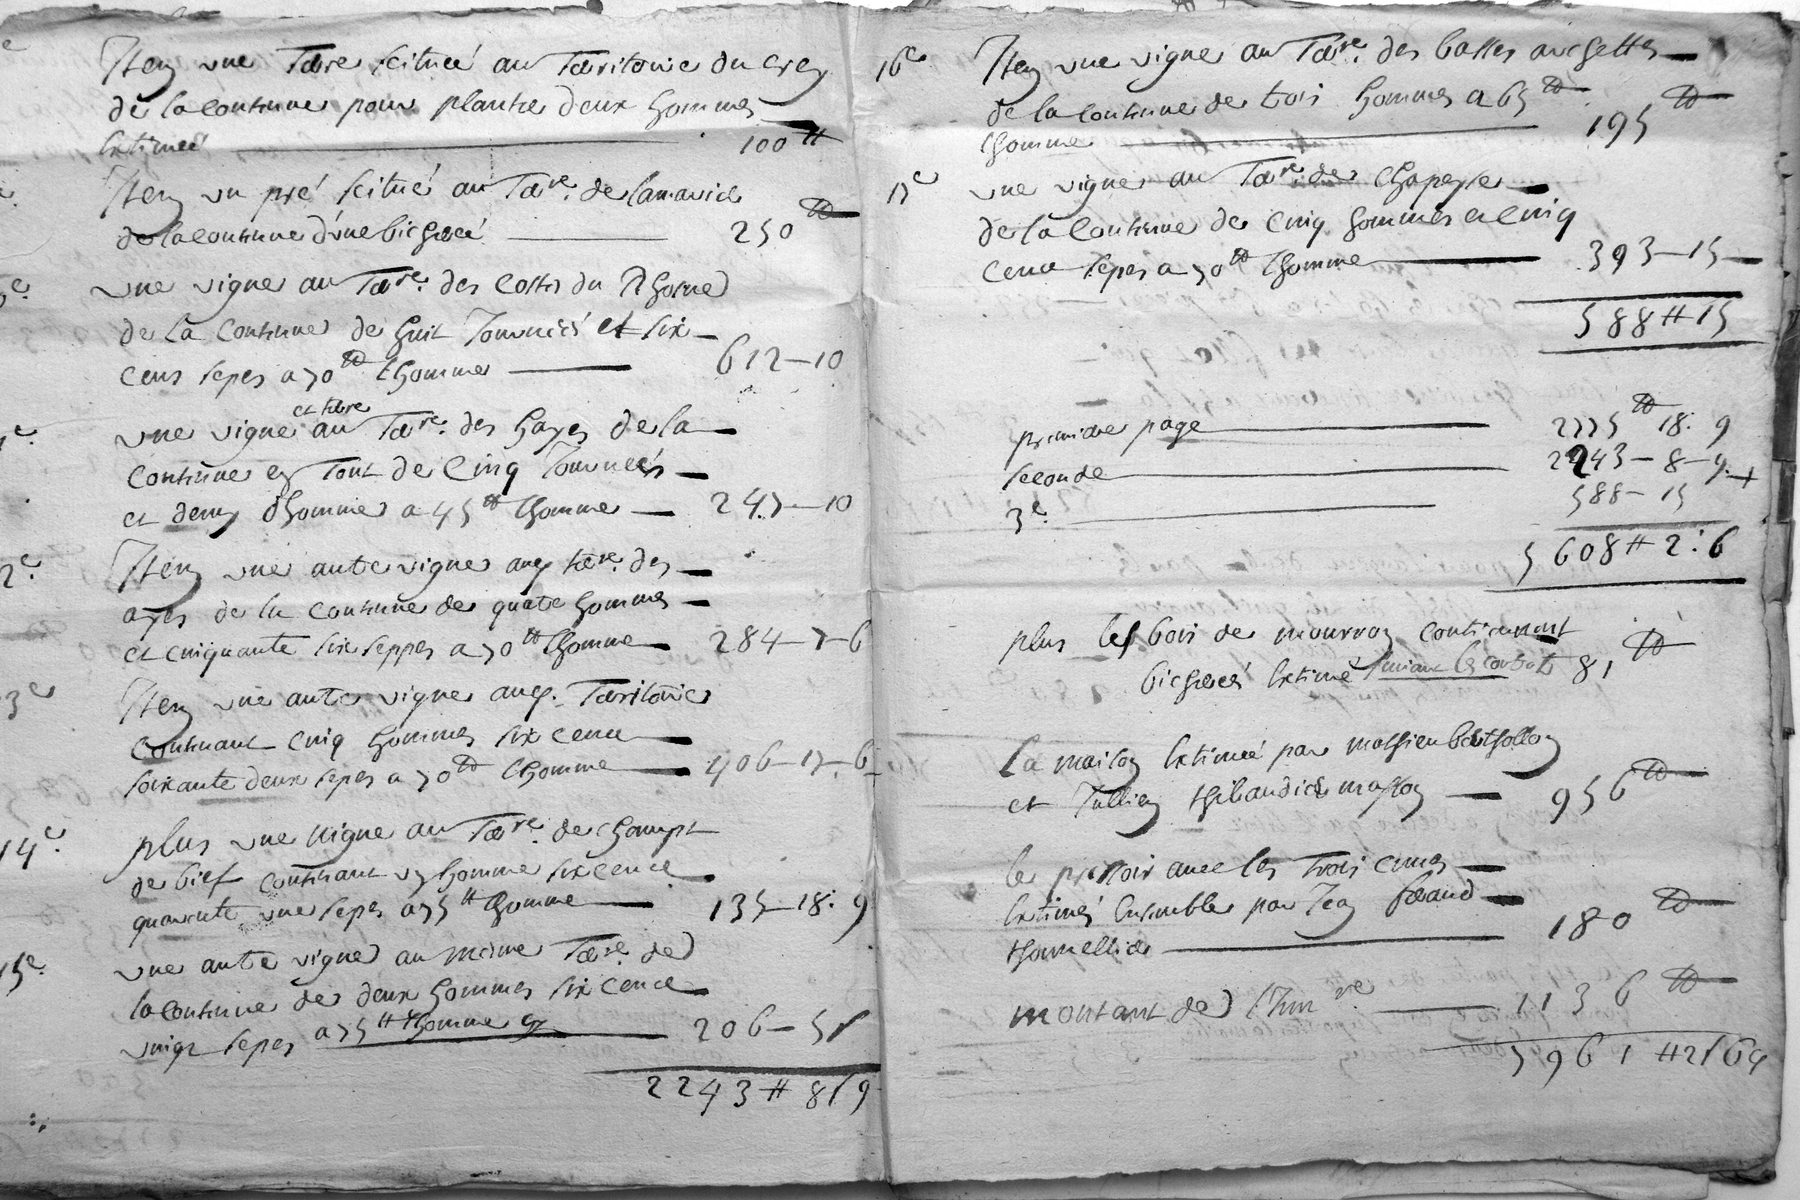 Item une Terre scituée au Territoire du crey
de la contenue pour plantée deux hommes
Extimeé 100 ₶
Item un pré scitué au Terre. de
de la contenue d'une bicheréé 250 ₶
une vigne au Terre. des Costes du Rhosne
de la contenue de huit Journées et six
cens seps a 70 ₶ Lhomme 612-10
et terre
une vigne au Terre. des hayes de la
contenue en tout de Cinq Journées
et demy dhomme a 45 ₶ Lhomme 247-10
2e. Item une autre vigne aud. terre. des
ayes de la contenue de quatre hommes
et cinquante six sepps a 70 ₶ Lhomme 284-7-6
3e Item une autre vigne aud. Territoire
contenant cinq hommes six cens
soixante deux seps a 70 ₶ lhomme 406-17-6
14e. plus une vigne au Terre. de champt
de bief contenant un homme six cens
quarente une seps a 75 ₶ Lhomme 135-18: 9
15e. une autre vigne au mesme Terre. de
la contenue de deux hommes six cens
vingt seps a 75 ₶ Lhomme cy 206-5
2243 ₶ 8 9
16e Item une vigne au Terre. des basses
de la contenue de trois hommes a 65 ₶
Lhomme 195 ₶
17e une vigne au Terre. de chapeyse
de la contenue de cinq hommes et cinq
cens sepes a 70 ₶ Lhomme 393-15
588 ₶ 15
premiere page 2775 ₶ 18: 9
seconde 2243-8-9
3e. 588-15
5608 ₶ 2: 6
plus les bois de contenant
bicherées Extimé suivant le contrat 81 ₶
La maison Extimeé par
et Jullien masson 956 ₶
le pressoir avec les trois cuves
Extimés Ensemble par Jean
thonnellier 180 ₶
montant de l'Invre 1136 ₶